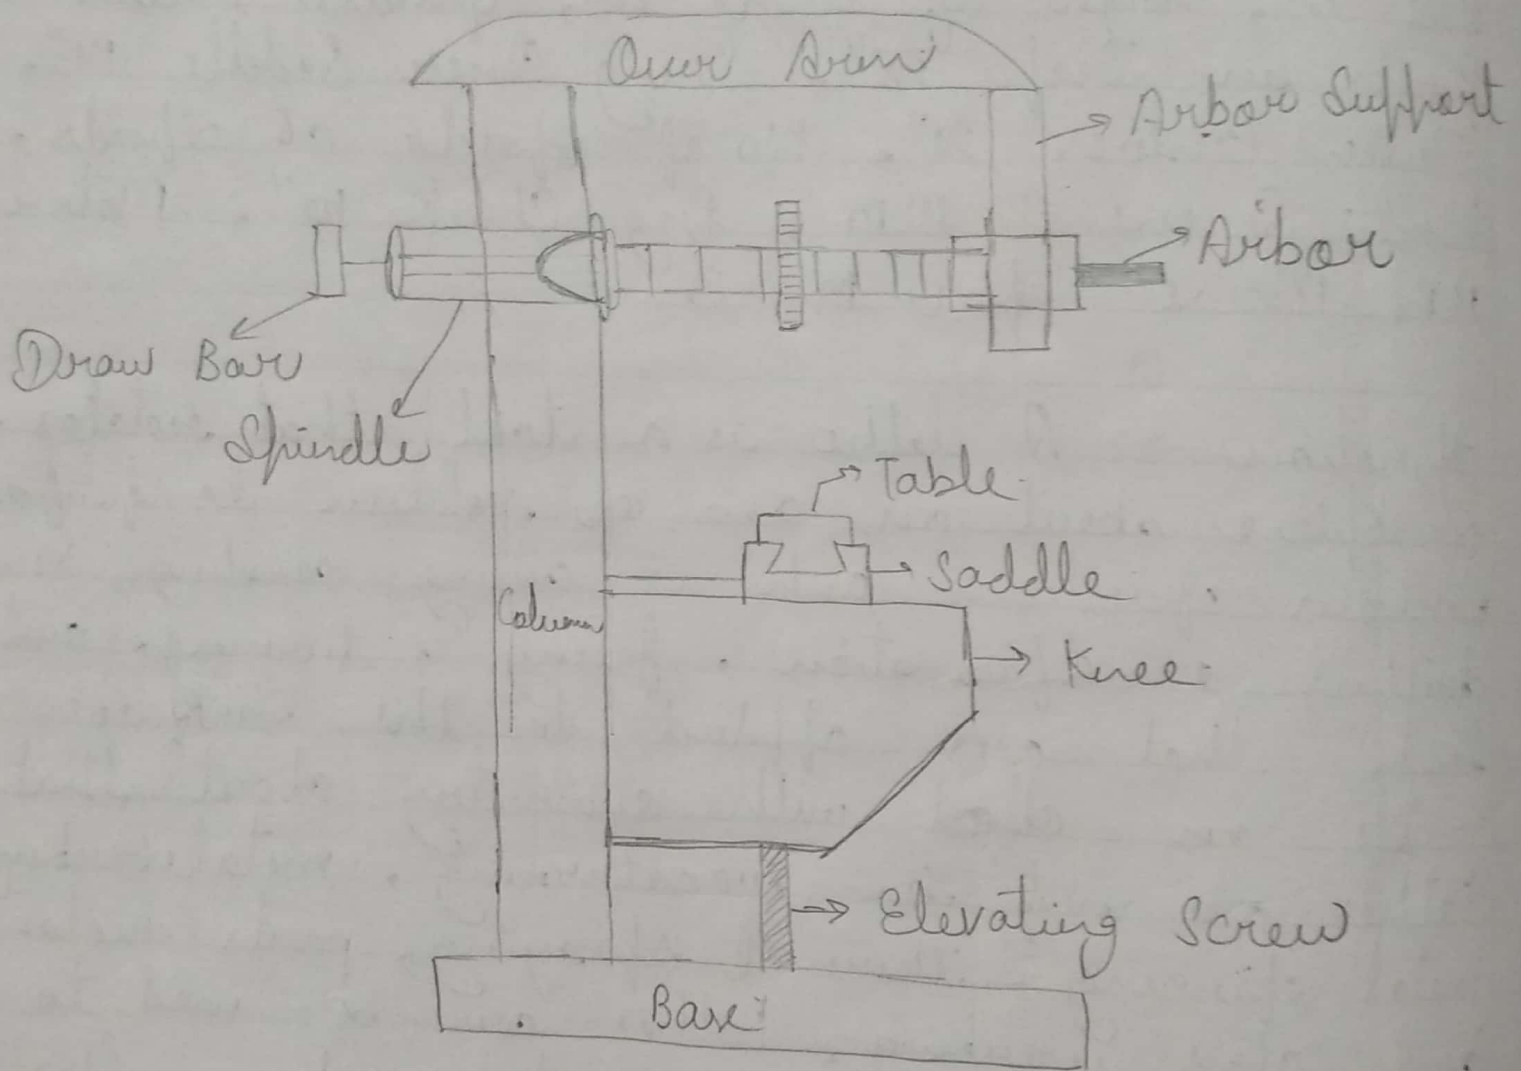 Over Arm
Arbor Support
Arbor
Draw Bar
Spindle
Table
Saddle
Column
Knee
Elevating Screw
Base